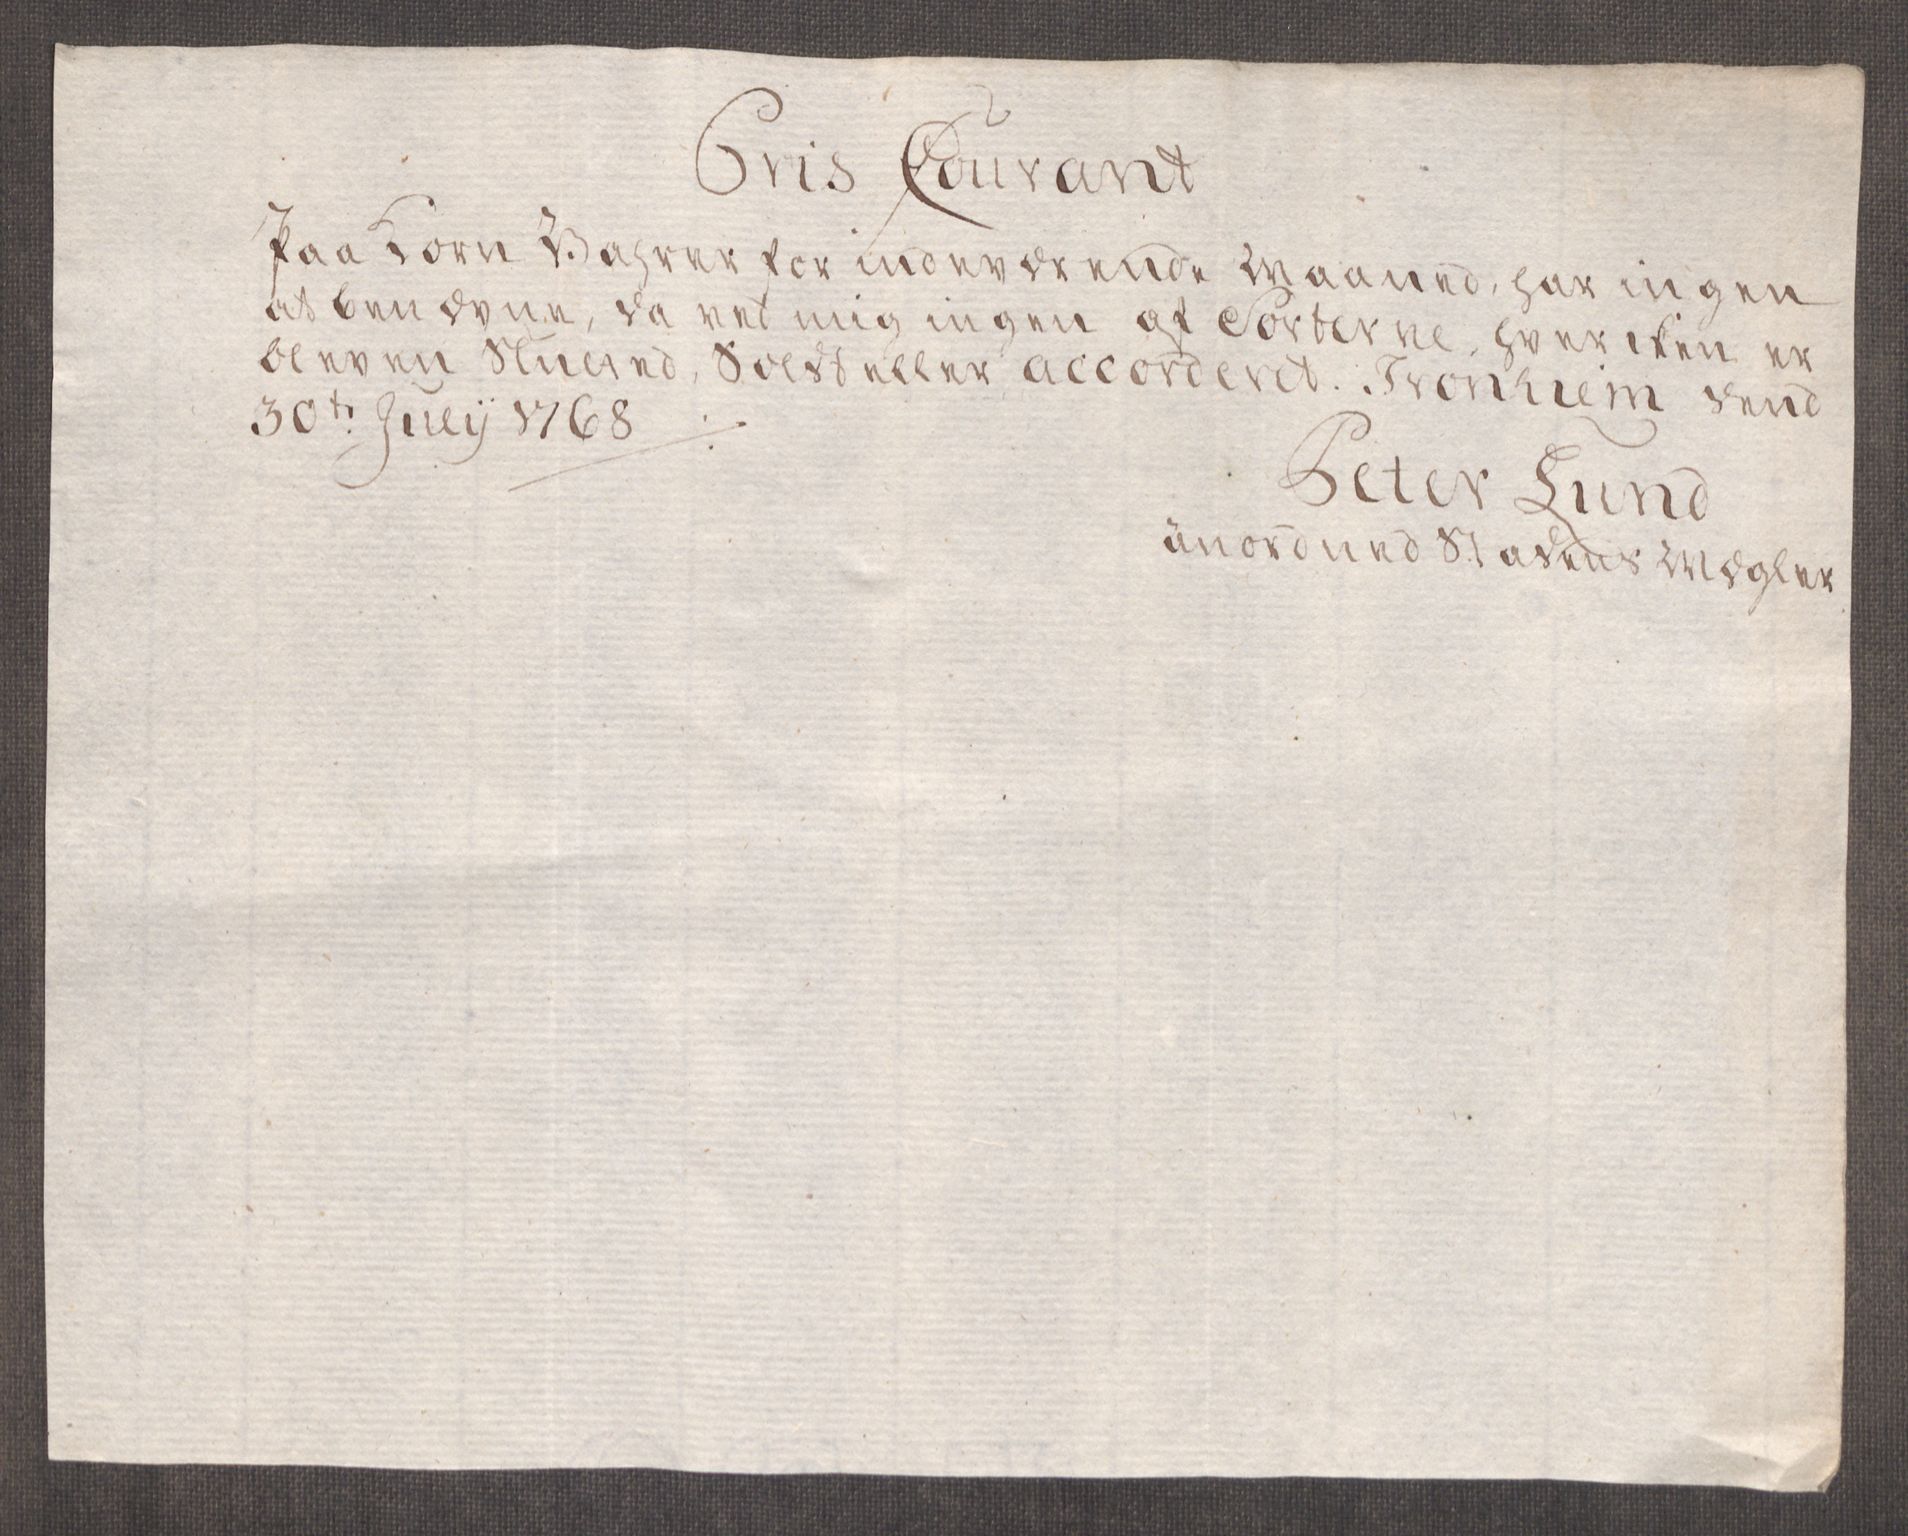 Pris Courant
Paa Korn Vahrer for indeværende Maaned, har ingen
at benævne, da ved mig ingen af Sorterne, hverken er
bleven Sluted, Soldt eller accorderet. Tronhiem dend
30te July 1768
Peter Lund
anordned Stadens Mægler